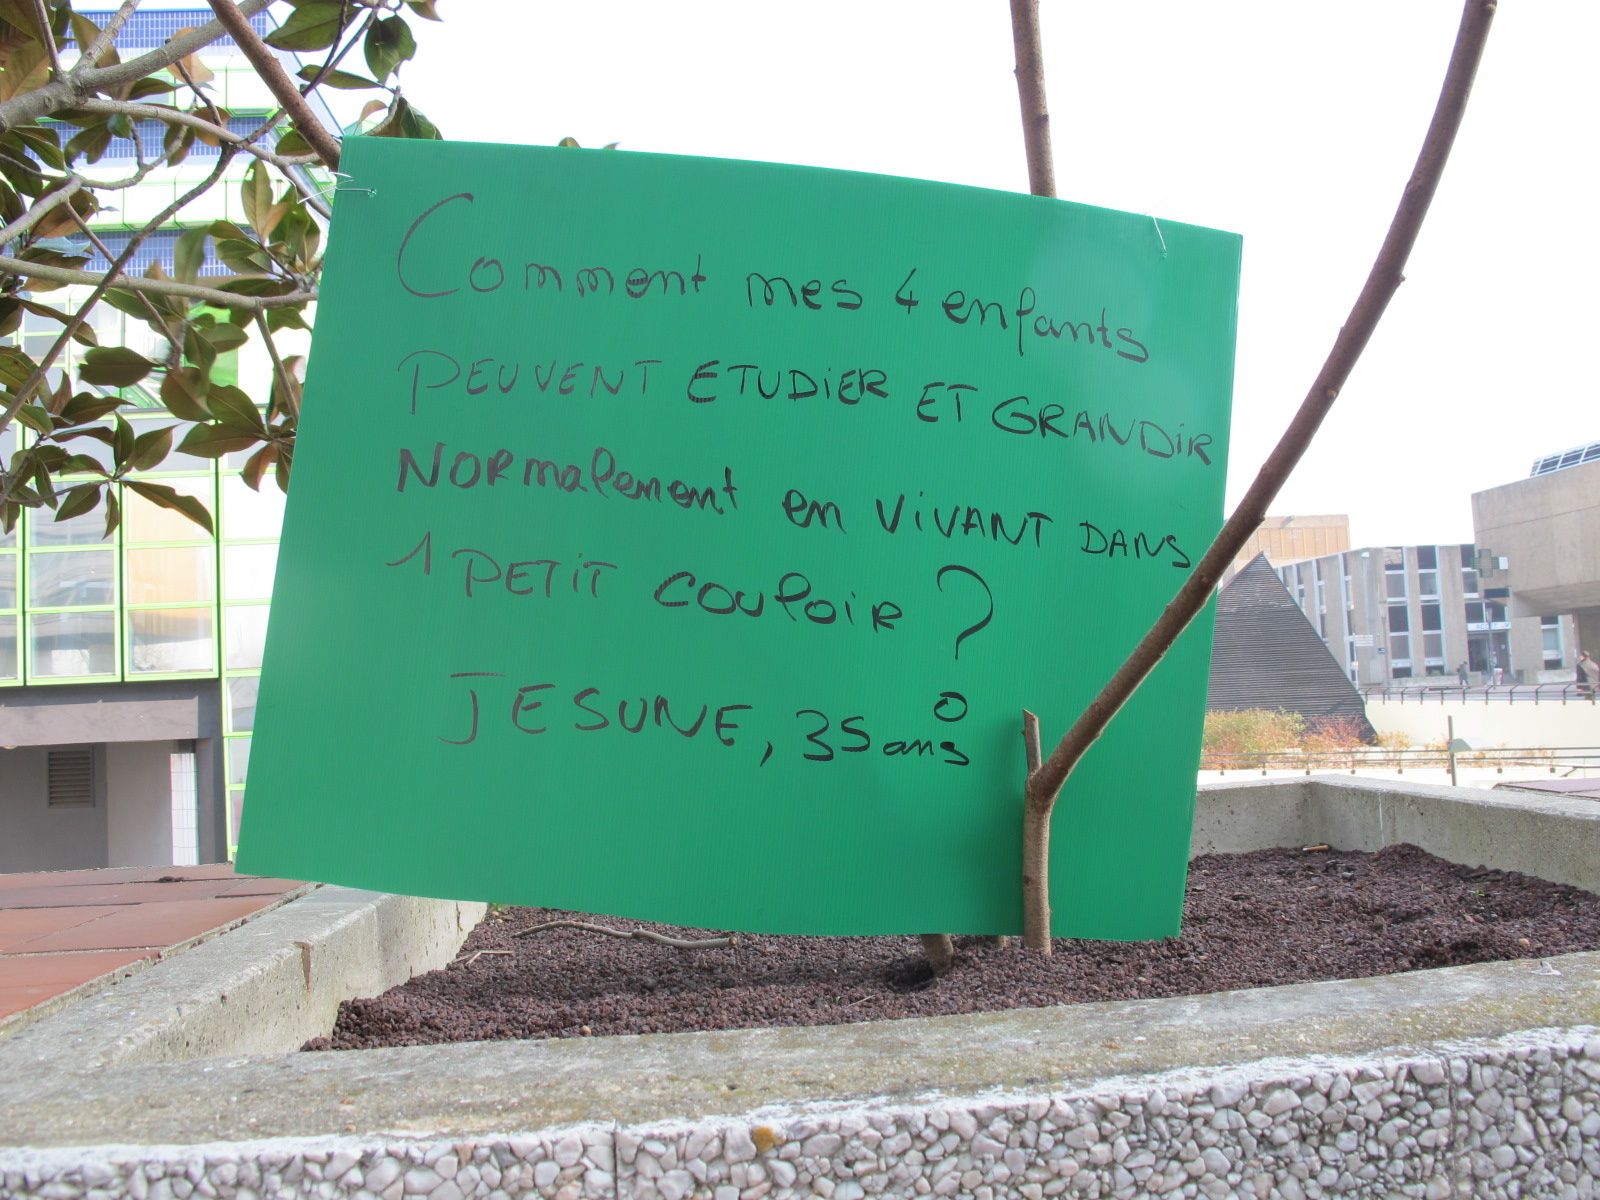 Comment mes 4 enfants
PEUVENT ETUDIER ET GRANDIR
NORmalement en ViVANT DANS
1 PETiT couloiR ?
JESUNE, 35 ans